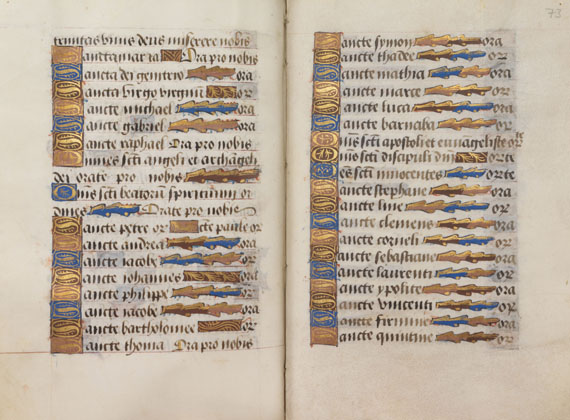 trinitas unus deus miserere nobis
Sancta maria Ora pro nobis
Sancta dei genitrix ora
Sancta virgo virginu or
Sancte michael ora
Sancte gabriel ora
Sancte raphael Ora pro nobis
Omnes scti angeli et archageli
dei orate pro nobis
Omnes scti beatorum spirituum or
dines Orate pro nobis
Sancte petre or Scte paule or
Sancte andrea ora
Sancte iacobe or
Sancte iohannes or
Sancte philippe or
Sancte iacobe ora
Sancte bartholomee or
Sancte thoma Ora pro nobis
73
Sancte symon ora
Sancte thadee or
Sancte mathia ora
Sancte marce or
Sancte luca or
Sancte barnaba or
Oms scti apostoli et euuagelist orte
Oms scti discipuli dni orte
Oes scti innocentes orte
Sancte stephane ora
Sancte line or
Sancte clemens ora
Sancte corneli or
Sancte sebastiane ora
Sancte laurenti or
Sancte ypolite ora
Sancte vincenti or
Sancte firmine ora
Sancte quintine or